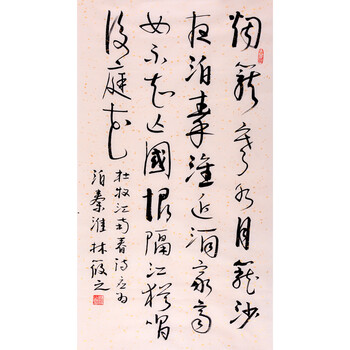 烟籠寒水月籠沙
夜泊秦淮近酒家商
女不知亡國恨隔江猶唱
後庭花
杜牧江南春诗应为
泊秦淮林筱之